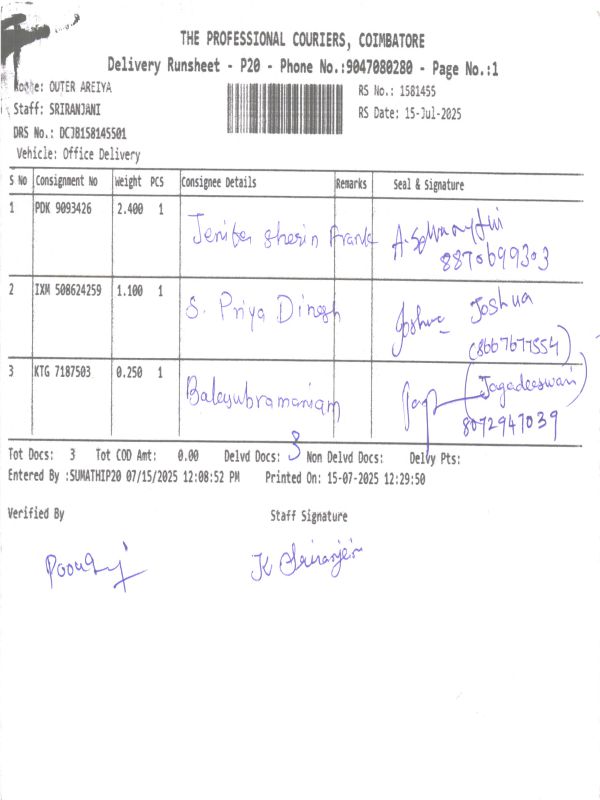 THE PROFESSIONAL COURIERS, COIMBATORE
Delivery Runsheet - P20 - Phone No.:9047080280 - Page No.:1
Route: OUTER AREIYA
RS No.: 1581455
Staff: SRIRANJANI
RS Date: 15-Jul-2025
DRS No.: DCJB158145501
Vehicle: Office Delivery
S No Consignment No Weight PCS Consignee Details Remarks Seal & Signature
1 PDK 9093426 2.400 1 Jenifer Sherin Frank
8870699303
2 IXM 508624259 1.100 1 S. Priya Dinesh Joshua Joshua
(8667677554)
3 KTG 7187503 0.250 1 Balasubramaniam (Jagadeeswari)
8072947039
Tot Docs: 3 Tot COD Amt: 0.00 Delvd Docs: 3 Non Delvd Docs: Delvy Pts:
Entered By :SUMATHIP20 07/15/2025 12:08:52 PM Printed On: 15-07-2025 12:29:50
Verified By Staff Signature
K Sriranjani